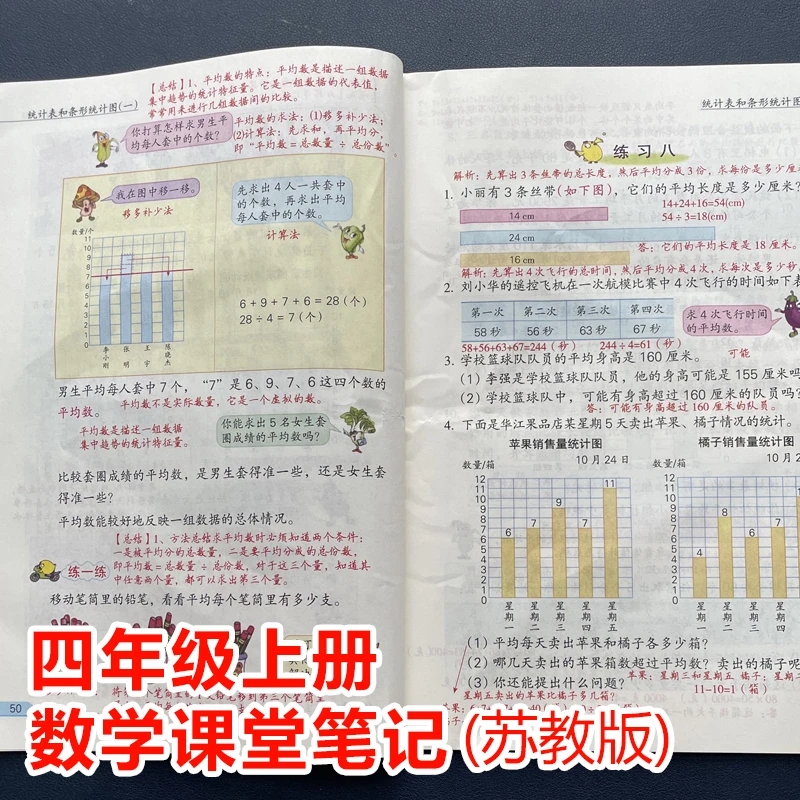 【总结】1、平均数的特点：平均数是描述一组数据
集中趋势的统计特征量。它是一组数据的代表值，
常常用来进行几组数据间的比较。
统计表和条形统计图(一)
你打算怎样求男生平
均每人套中的个数？
平均数的求法：(1)移多补少法；
(2)计算法：先求和，再平均分，
即“平均数=总数量 ÷ 总份数”。
我在图中移一移。
移多补少法
先求出 4 人一共套中
的个数，再求出平均
每人套中的个数。
计算法
数量/个
11
10
9
8
7
6
5
4
3
2
1
0
李小刚
张明
王宇
陈晓杰
6 + 9 + 7 + 6 = 28（个）
28 ÷ 4 = 7（个）
男生平均每人套中 7 个，“7”是 6、9、7、6 这四个数的
平均数。
平均数不是实际数量，它是一个虚拟的数。
平均数是描述一组数据
集中趋势的统计特征量。
你能求出 5 名女生套
圈成绩的平均数吗？
比较套圈成绩的平均数，是男生套得准一些，还是女生套
得准一些？
平均数能较好地反映一组数据的总体情况。
【总结】1、方法总结求平均数时必须知道两个条件：
一是被平均分的总数量，二是要平均分成的总份数，
即平均数=总数量 ÷ 总份数，对于这三个量，知道其
中任意两个量，都可以求出第三个量。
练一练
移动笔筒里的铅笔，看看平均每个笔筒里有多少支。
50
统计表和条形统计图
练习八
解析：先算出3条丝带的总长度，然后平均分成3份，求每份是多少厘
1. 小丽有 3 条丝带（如下图），它们的平均长度是多少厘米？
14+24+16=54(cm)
54÷3=18(cm)
14 cm
24 cm
16 cm
答：它们的平均长度是 18 厘米。
解析：先算出4次飞行的总时间，然后平均分成4次，求每次是多少秒
2. 刘小华的遥控飞机在一次航模比赛中 4 次飞行的时间如下表
第一次 第二次 第三次 第四次
58 秒 56 秒 63 秒 67 秒
求 4 次飞行时间
的平均数。
58+56+63+67=244（秒） 244÷4=61（秒）
3. 学校篮球队队员的平均身高是 160 厘米。
可能
（1）李强是学校篮球队队员，他的身高可能是 155 厘米吗
（2）学校篮球队中，可能有身高超过 160 厘米的队员吗？
答：可能有身高超过 160 厘米的队员。
4. 下面是华江果品店某星期 5 天卖出苹果、橘子情况的统计。
苹果销售量统计图
数量/箱 10 月 24 日
12
11
10
9
8
7
6
5
4
3
2
1
0
6 7 9 7 11
星期一 星期二 星期三 星期四 星期五
橘子销售量统计图
数量/箱 10 月
12
11
10
9
8
7
6
5
4
3
2
1
0
4 8 6 7
星期一 星期二 星期三 星期四
（1）平均每天卖出苹果和橘子各多少箱？
（2）哪几天卖出的苹果箱数超过平均数？卖出的橘子呢
（3）你还能提出什么问题？
苹果：星期三和星期五 橘子：星期
星期五卖出的苹果比橘子多几箱？
11-10=1（箱）
四年级上册
数学课堂笔记(苏教版)